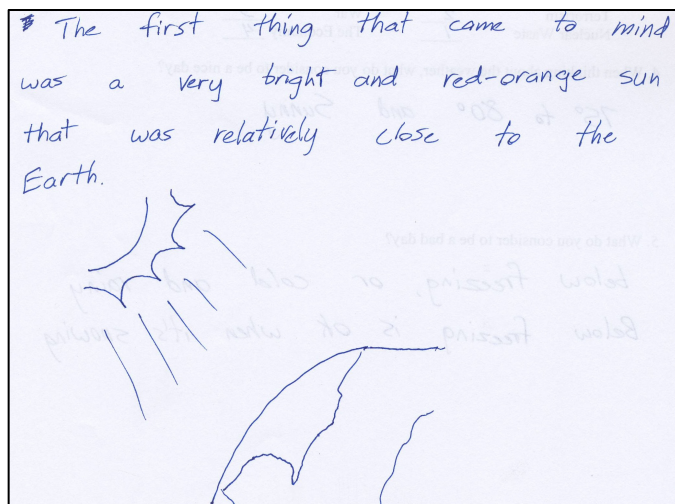 The first thing that came to mind
was a very bright and red-orange sun
that was relatively close to the
Earth.